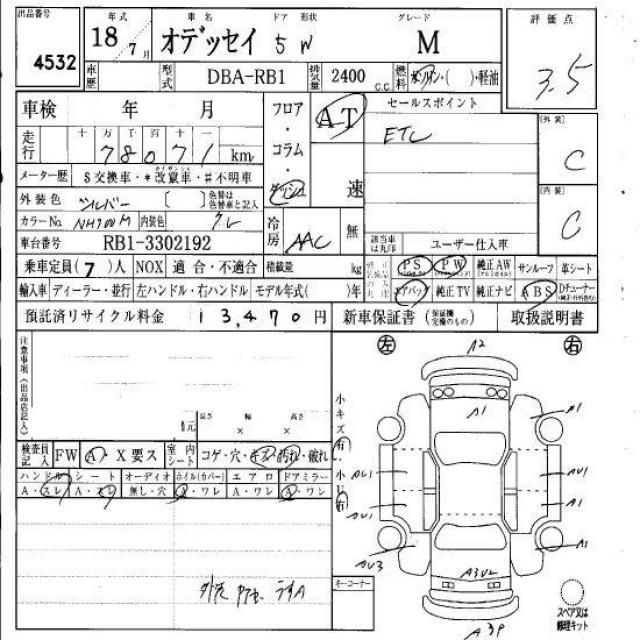 出品番号 4532
年式 18 7月
車名 オデッセイ
ドア 形状 5 W
グレード M
評価点 3.5
車歴
型式 DBA-RB1
排気量 2400 c.c.
燃料 ガソリン・( )・軽油
車検 年 月
フロア・コラム・ダッシュ
AT 速
セールスポイント
ETC
[外装] C
[内装] C
走行 十万千百十一 78071 km
メーター歴 $交換車・*改竄車・#不明車
外装色 シルバー [ ] 色替は色替車と記入
カラーNo. NH700M 内装色 グレ
冷房 AAC 無
車台番号 RB1-3302192
該当車は丸印
ユーザー仕入車
乗車定員(7)人 NOX 適合・不適合 積載量 kg
PS PW 純正AW サンルーフ 革シート
輸入車 ディーラー・並行 左ハンドル・右ハンドル モデル年式( )年
エアバッグ 純正TV 純正ナビ ABS Dチューナー
預託済リサイクル料金 13,470円
新車保証書 (保証継完備のもの) 取扱説明書
注意事項(出品店記入)
左 右
長さ 幅 高さ
× ×
検査員記入 FW A・X要ス 室内シート コゲ・穴・キズ・汚れ・破れ
ハンドル シート オーディオ ホイル(カバー) エアロ ドアミラー
A・スレ A・スレ 無し・穴 A・ワレ A・ワレ A・ワレ
小キズ有
A2
A1
A1
AU1 AU1
AU1 A1
AU3
A3U2
A3P
キーコーナー
スペア又は修理キット